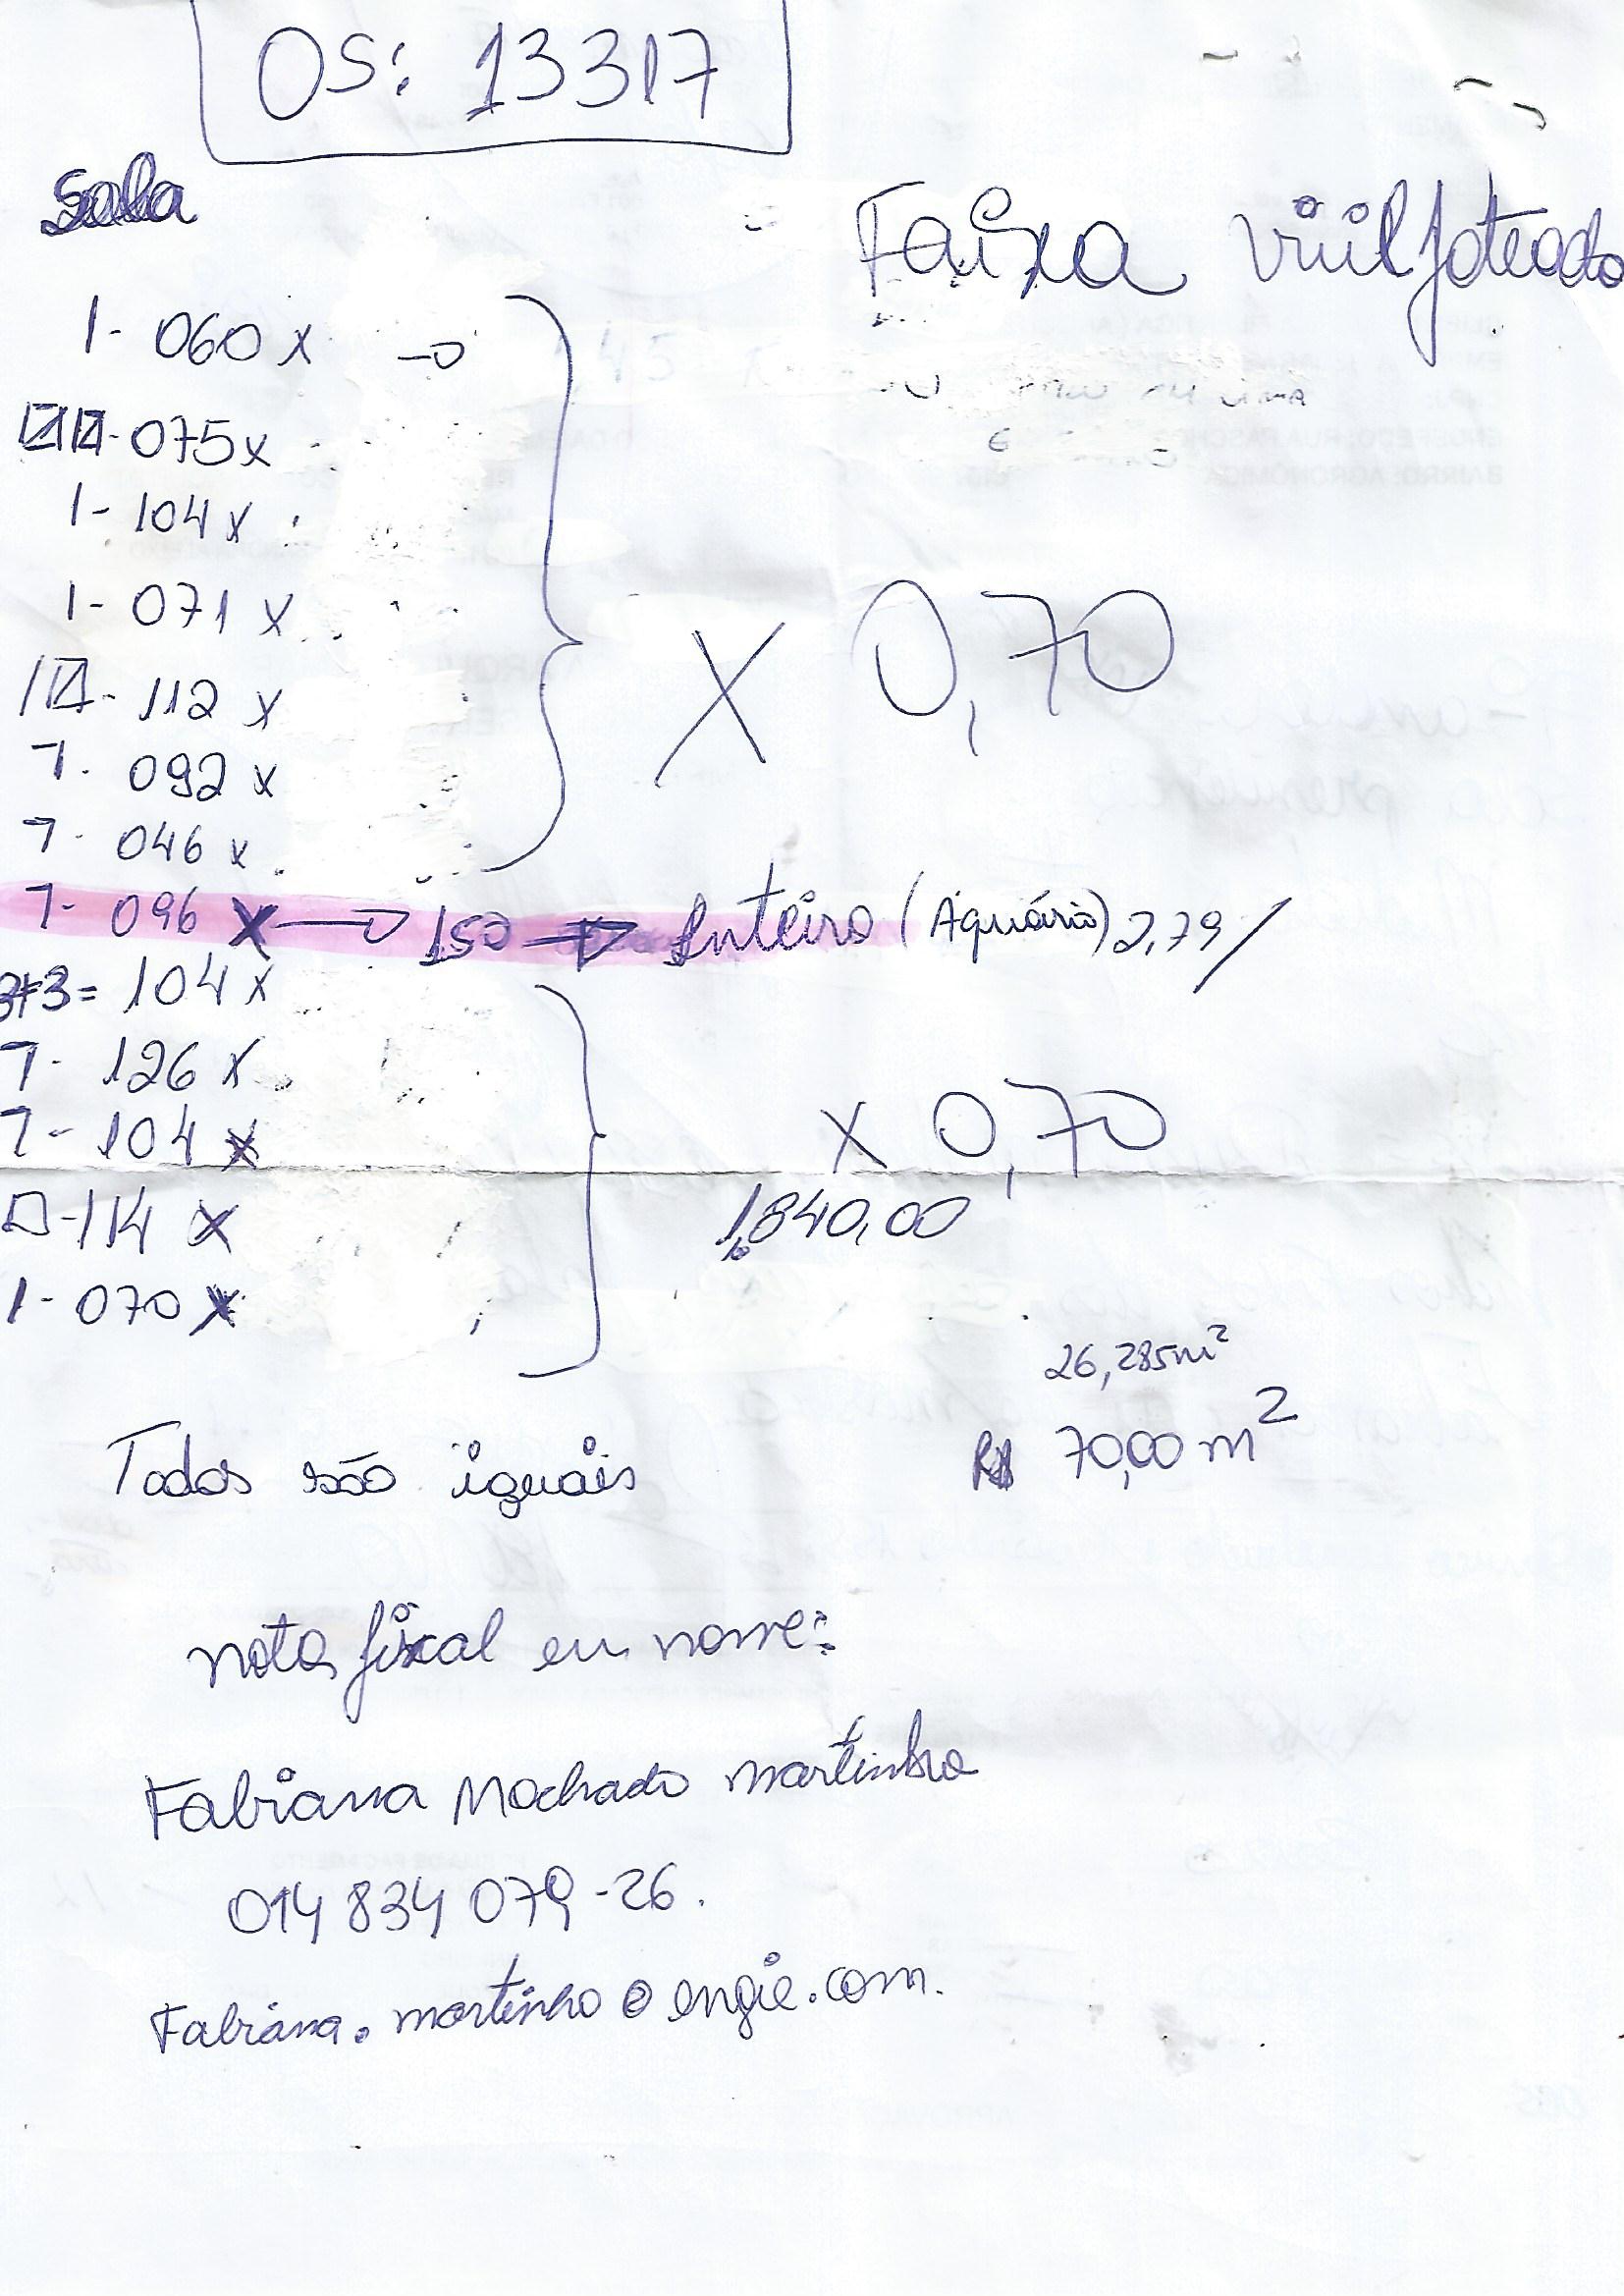 OS: 13317
Sala
Faixa vinil jateado
1- 060 x
075 x
1- 104 x
1- 071 x
112 x
7- 092 x
7- 046 x
x 0,70
7- 096 x 150 Inteiro (Aquário) 2,79/
3+3= 104 x
7- 126 x
7- 104 x
-114 x
1- 070 x
x 0,70
1.840,00
26,285m²
R$ 70,00 m²
Todos são iguais
nota fiscal em nome:
Fabiana Machado martinho
014 834 079-26.
Fabiana.martinho@engie.com.